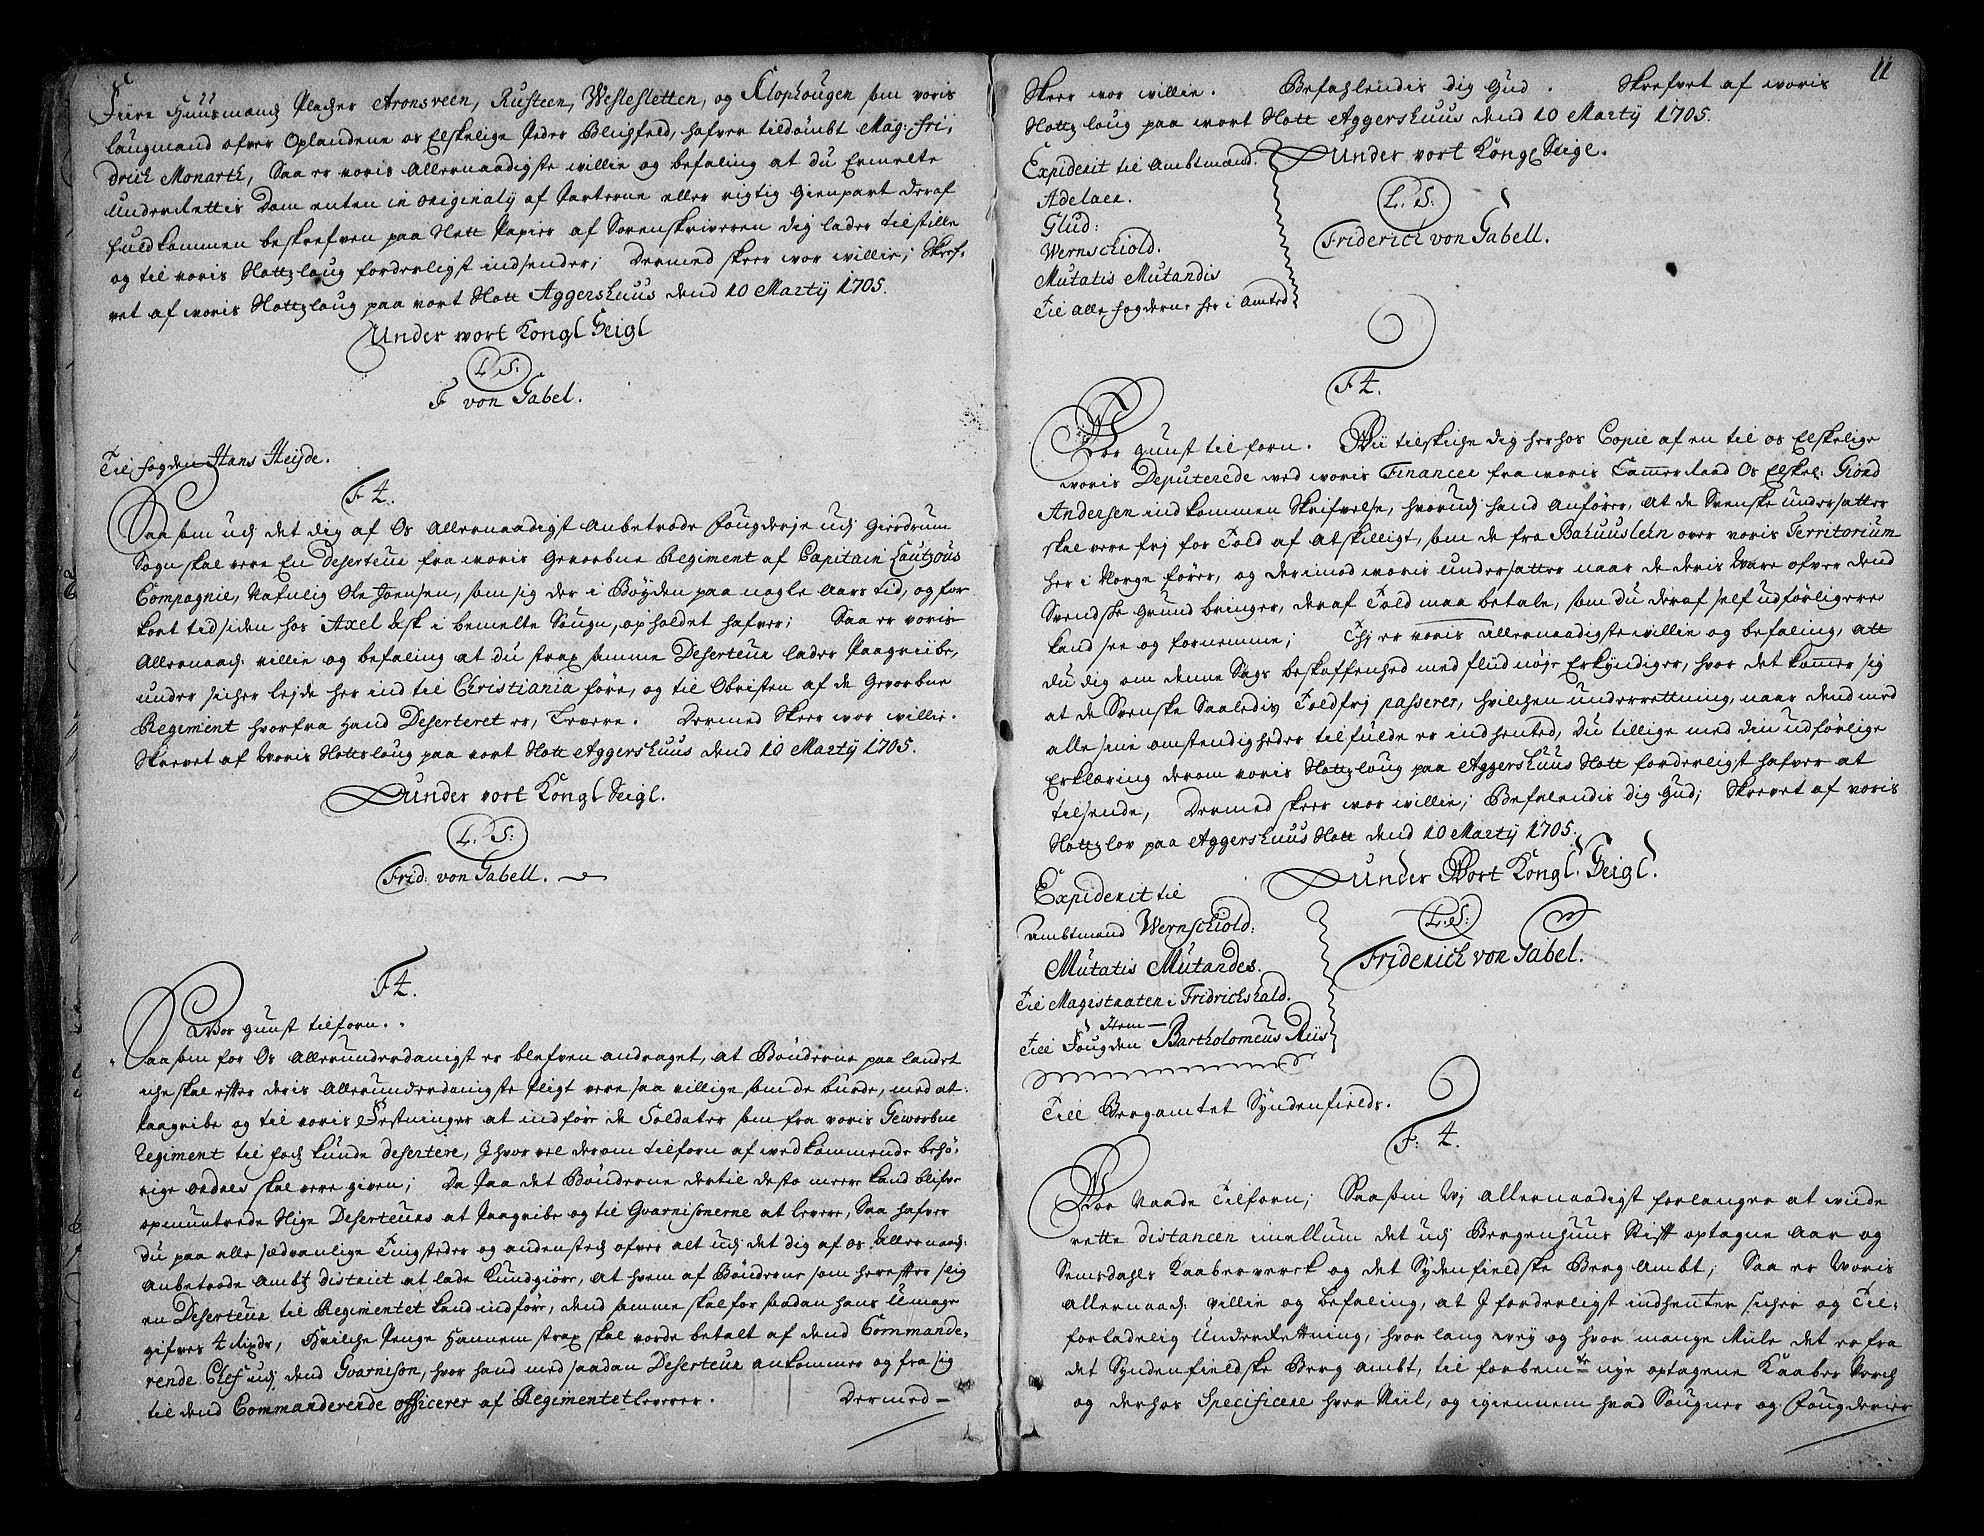 Fiire Huusmands Pladser Aronsveen, Rusteen, Weslesletten, og Klophougen som voris
laugmand ofver Oplandene os Elskelige Peder Blichfeld, hafver tildömbt Mag: Fri,
drich Monarth, Saa er voris Allernaadigste willie og befaling at du Ermelte
Underrettis Dom enten in originaly af Parterne eller rigtig Gienpart deraf
fuldkommen beskrefven paa Slett Papier af Sorenskriveren dig lader tilstille
og til voris Slottzloug forderligst indsender; Dermed skeer vor willie; Skref,
vet af voris Slottzloug paa vort Slott Aggershuus dend 10 Marty 1705.
Under wort Kongl Seigl
L. S:
F von Gabel.
Til fogden Hans Heyde.
F 4.
Saasom udj det dig af Os Allernaadigst Anbetrode Fougderje udj Gierdrum
Sogn skal vere En Deserteur fra woris Gevorbne Regiment af Capitain Cautzous
Compagnie, Nafnlig Ole Joensen, som sig der i Bøyden paa nogle Aars tid, og for
kort tid siden hos Axel Ask i bemelte Sougn, opholdet hafver; Saa er voris
Allernaad: villie og befaling at du strax samme Deserteur lader Paagriibe,
under sicher lejde her ind til Christiania føre, og til Obristen af de Gevorbne
Regiment hvorfra hand Deserteret er, Levere. Dermed Skeer vor willie.
Skrevet af Voris Slottsloug paa vort Slott Aggershuus dend 10 Marty 1705.
Under vort Kongl Seigl.
L. S:
Frid: von Gabell.
F 4.
Vor gunst tilforn.
Saasom for Os Allerunderdanigst er blefven andraget, at Bønderne paa landet
iche skal efter deris Allerunderdanigste Pligt vere saa villige som de burde, med at
Paagribe og til voris Festninger at indføre de Soldater som fra voris Geworbne
Regiment til fods kunde desertere, Ihvorvel derom tilforn af wedkommende behö,
rige Ordres skal vere given; Da paa det Bønderne dertil desto meere kand blifve
opmuntrede Slige Deserteurs at Paagribe og til Gvarnisonerne at levere, Saa hafver
du paa alle sædvanlige Tingsteder og andensteds ofver alt udj det dig af os Allernaad:
Anbetrode Ambtz district at lade Kundgiøre, at hvem af Bønderne som herefter slig
en Deserteur til Regimentet kand indføre, dend samme skal for saadan hans Umage
gifves 4 Rixdr, Hvilche Penge Hannem strax skal vorde betalt af dend Commande,
rende Chef udj dend Gvarnison, hvor hand med saadan Deserteur ankommer og fra sig
til dend Commanderende officerer af Regimentet leverer. Dermed
11
Skeer vor willie. Befahlendis dig Gud. Skrefvet af woris
Slottzloug paa wort Slott Aggershuus dend 10 Marty 1705.
Expiderit til Ambtmand.
Adelaer.
Glud:
Wernschiold.
Mutatis Mutandis
Til alle fogderne her i Amtet
Under vort Kongl Seigl.
L. S:
Friderich von Gabell.
F 4.
Vor gunst tilforn. Wii tilskiche dig herhos Copie af en til os Elskelige
woris Deputerede ved woris Financer fra woris Cammerraad Os Elskel: Giord
Andersen indkommen Skrifvelse, hvorudj hand Anfører, At de Svenske undersatter
skal vere frj for Told af Atskilligt, som de fra Bahuuslehn over voris Territorium
her i Norge fører, og derimod woris undersatter naar de deris Ware ofver dend
Svendske Grund bringer, deraf Told maa betale, som du deraf self udførligere
kand see og fornemme; Thj er voris allernaadigste willie og befaling, att
du dig om denne Sags beskaffenhed med fliid nøje Erkyndiger, hvor det kommer sig
at de Svenske Saaledis Toldfrj passerer, hvilchen underrettning, naar dend med
alle sine omstendigheder tilfulde er indhented, Du tillige med din udførlige
Erklæring derom voris Slottzloug paa Aggershuus Slott forderligst hafver at
tilsende, Dermed skeer vor willie; Befalendis dig Gud; Skrevet af voris
Slottzlov paa Aggershuus Slott dend 10 Marty 1705.
Under Wort Kongl. Seigl.
Expiderit til
Ambtmand Wernschiold:
Mutatis Mutandes.
Til Magistraten i Fridrichshald.
Item
Till Fougden Bartholomeus Riis
L. S:
Friderich von Gabel.
Till Bergamtet Syndenfields.
F: 4.
Vor Naade Tilforn; Saasom Wj Allernaadigst forlanger at wiide
rette distancen imellum det udj Bergenhuus Stift optagne Aar og
Semsdahls Kaaberverck og det Sydenfieldske Berg Ambt; Saa er Voris
Allernaad: villie og befaling, at I forderligst indhenter sicher og Til:
forladelig Underrettning, hvor lang wej og hvor mange Miile det er fra
det Syndenfieldske Berg Ambt, til forbemte nye optagene Kaaber Verch
og derhos Specificere hver Miil, og igiennem hvad Sougner og Fougderier